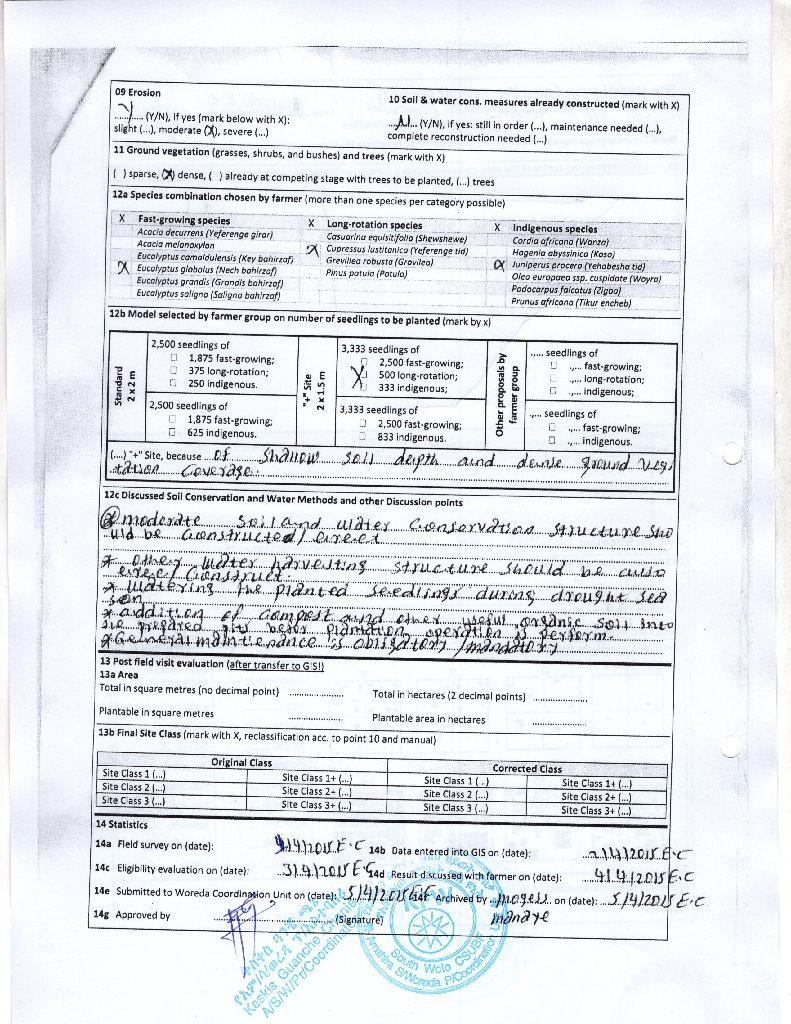 09 Erosion
10 Soil & water cons. measures already constructed (mark with X)
...Y... (Y/N), if yes (mark below with X):
slight (...), moderate (X), severe (...)
...N... (Y/N), if yes: still in order (...), maintenance needed (...),
complete reconstruction needed (...)
11 Ground vegetation (grasses, shrubs, and bushes) and trees (mark with X)
( ) sparse, (X) dense, ( ) already at competing stage with trees to be planted, (...) trees
12a Species combination chosen by farmer (more than one species per category possible)
X Fast-growing species
Acacia decurrens (Yeferenge girar)
Acacia melanoxylon
Eucalyptus camaldulensis (Key bahirzaf)
X Eucalyptus globolus (Nech bahirzaf)
Eucalyptus grandis (Grandis bahirzaf)
Eucalyptus saligna (Saligna bahirzaf)
X Long-rotation species
Casuarina equisitifolia (Shewshewe)
X Cupressus lustitanica (Yeferenge tid)
Grevilea robusta (Gravilea)
Pinus patula (Patula)
X Indigenous species
Cordia africana (Wanza)
Hagenia abyssinica (Koso)
X Juniperus procera (Yehabesha tid)
Olea europaea ssp. cuspidate (Woyra)
Podocarpus falcatus (Zigba)
Prunus africana (Tikur encheb)
12b Model selected by farmer group on number of seedlings to be planted (mark by x)
Standard
2 x 2 m
2,500 seedlings of
☐ 1,875 fast-growing;
☐ 375 long-rotation;
☐ 250 indigenous.
2,500 seedlings of
☐ 1,875 fast-growing;
☐ 625 indigenous.
"+" Site
2 x 1.5 m
3,333 seedlings of
☐ 2,500 fast-growing;
X 500 long-rotation;
☐ 333 indigenous;
3,333 seedlings of
☐ 2,500 fast-growing;
☐ 833 indigenous.
Other proposals by
farmer group
.,... seedlings of
☐ .,... fast-growing;
☐ .,... long-rotation;
☐ .,... indigenous;
.,... seedlings of
☐ .,... fast-growing;
☐ .,... indigenous.
(....) "+" Site, because of shallow soil depth and dense ground vege
tation coverage.
12c Discussed Soil Conservation and Water Methods and other Discussion points
* moderate soil and water conservation structure sho
uld be constructed/ erect
* other water harvesting structure should be
erect/ construct
* watering the planted seedlings during drought sea
son
* addition of compost and other useful organic soil into
the prepared pits before plantation operation is perform.
* General maintenance is obligatory /mandatory
13 Post field visit evaluation (after transfer to GIS!)
13a Area
Total in square metres (no decimal point) ................
Total in hectares (2 decimal points) ................
Plantable in square metres ................
Plantable area in hectares ................
13b Final Site Class (mark with X, reclassification acc. to point 10 and manual)
Original Class
Corrected Class
Site Class 1 (...) Site Class 1+ (...) Site Class 1 (..) Site Class 1+ (...)
Site Class 2 (...) Site Class 2+ (...) Site Class 2 (...) Site Class 2+ (...)
Site Class 3 (...) Site Class 3+ (...) Site Class 3 (...) Site Class 3+ (...)
14 Statistics
14a Field survey on (date): /4/2015 E.C 14b Data entered into GIS on (date): 2/4/2015 E.C
14c Eligibility evaluation on (date): 3/4/2015 E.C 14d Result discussed with farmer on (date): 4/4/2015 E.C
14e Submitted to Woreda Coordination Unit on (date): 5/4/2015 E.C 14f Archived by Mogess on (date): 5/4/2015 E.C
manaye
14g Approved by ................ (Signature)
South Wolo CSUBE
Amahira S/Woreda P/Coordination Unit
Keshis Guanche
A/S/W/Pr/Coordin